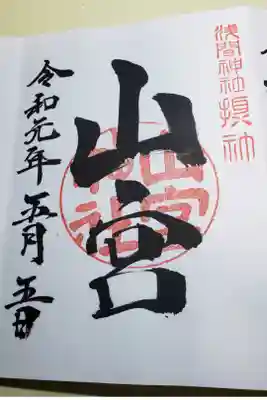 浅間神社摂社
山宮
山宮神社
令和元年五月五日